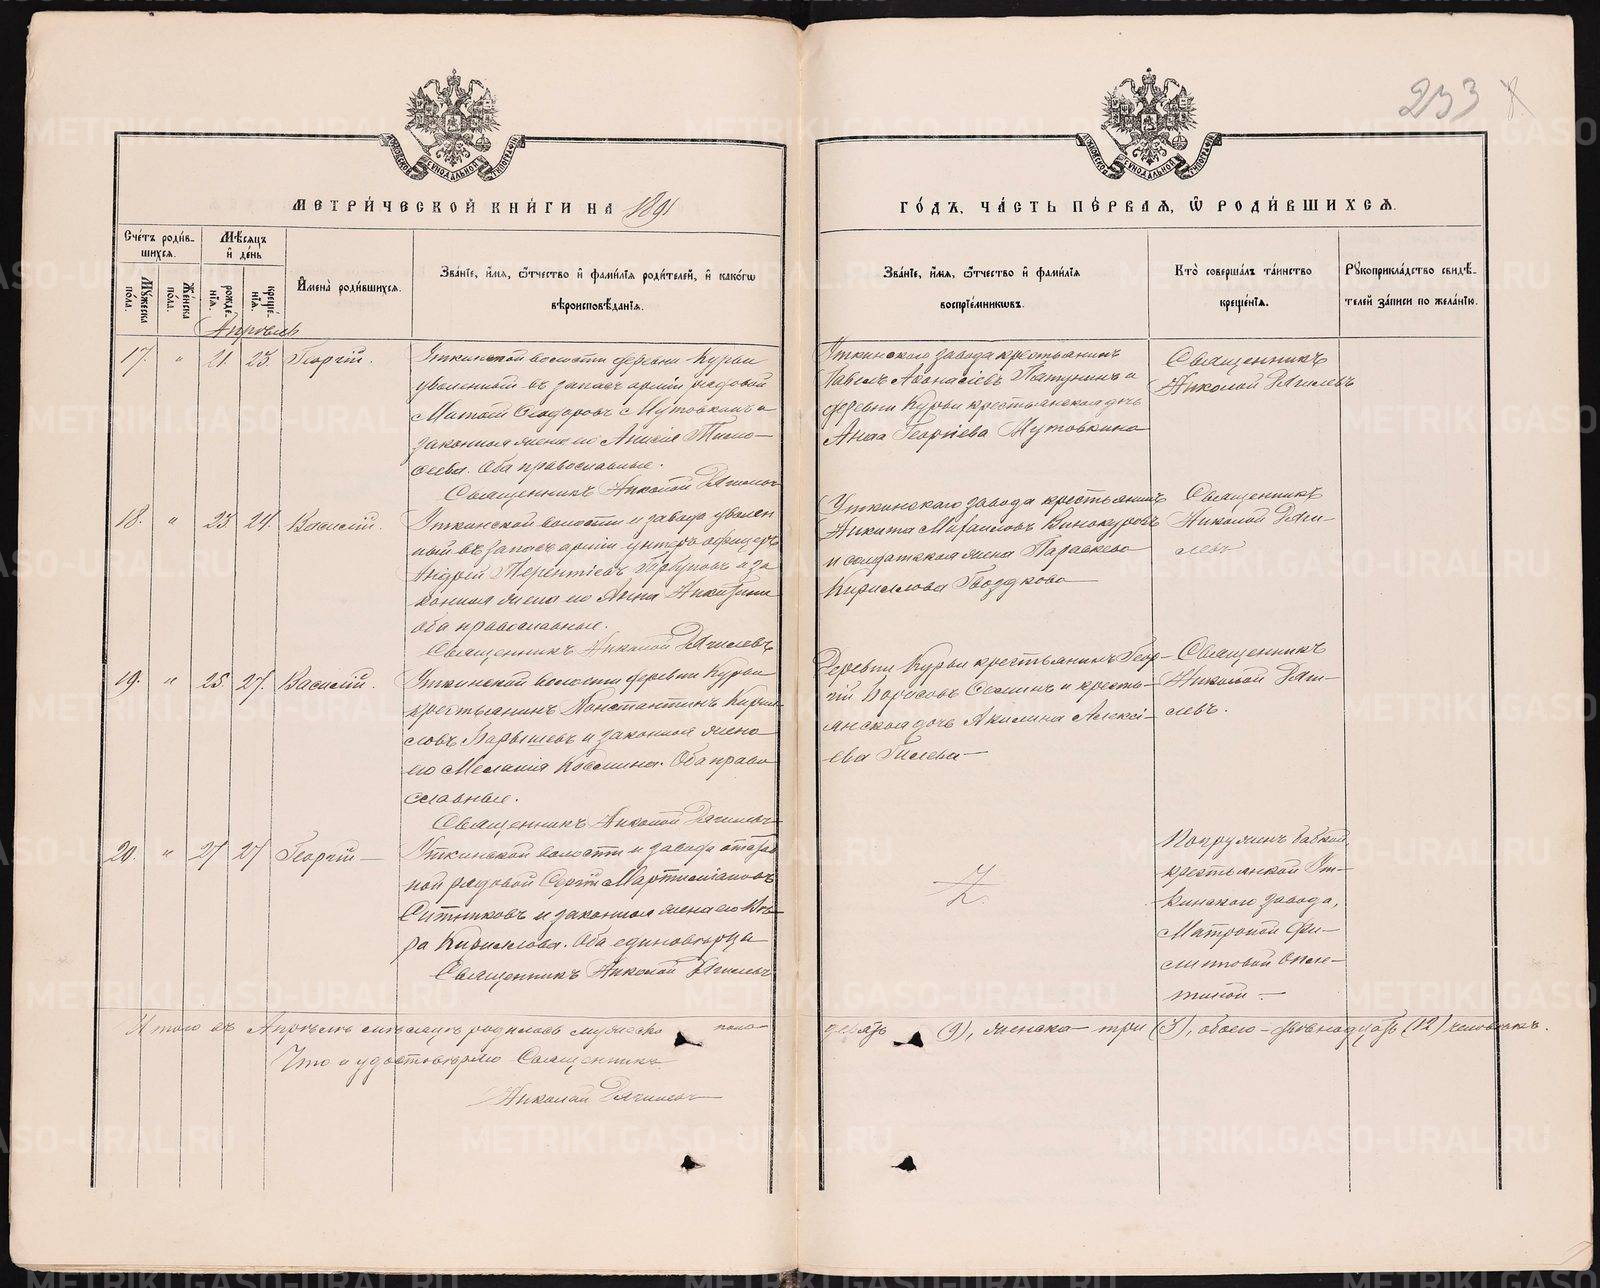 233
МЕТРИ́ЧЕСКОЙ КНИ́ГИ НА 1891
ГО́ДЪ, ЧА́СТЬ ПЕ́РВАЯ, Ѡ РОДИ́ВШИХСѦ.
Сче́тъ роди́в-
шихсѧ.
Мѣ́сѧцъ
и҆ де́нь
И҆мена̀ роди́вшихсѧ.
Зва́нїе, и҆́мѧ, ѻ҆́тчество и҆ фами́лїѧ роди́телей, и҆ како́гѡ
вѣроисповѣ́данїѧ.
Зва́нїе, и҆́мѧ, ѻ҆́тчество и҆ фами́лїѧ
воспрїе́мниковъ.
Кто̀ соверша́лъ та́инство
креще́нїѧ.
Рꙋкоприкла́дство свидѣ́-
телей за́писи по жела́нїю.
Мꙋ́жеска
по́ла.
Же́нска
по́ла.
рожде́-
нїѧ.
креще́-
нїѧ.
Апрѣль
17. " 21. 23. Георгій.
Уткинской волости деревни Курьи
уволенный въ запасъ арміи рядовой
Ѳеодоровъ Мутовкинъ и
законная жена его Анисія Тимо-
ѳеева. Оба православные.
Священникъ Николай Дягилевъ
Уткинскаго завода крестьянинъ
Павелъ Аѳанасіевъ и
деревни Курьи крестьянская дочь
Анна Георгіева Мутовкина
Священникъ
Николай Дягилевъ
18. " 23 24. Василій.
Уткинской волости и завода уволен
ный въ запасъ арміи унтеръ офицеръ
Андрей Терентіевъ Горбуновъ и за
конная жена его Анна Никитина
оба православные.
Священникъ Николай Дягилевъ
Уткинскаго завода крестьянинъ
Никита Михаиловъ Винокуровъ
и солдатская жена Параскева
Кириллова Гвоздкова
Священникъ
Николай Дяги-
левъ
19. " 25. 27. Василій.
Уткинской волости деревни Курьи
крестьянинъ Константинъ Кирил-
ловъ и законная жена
его Меланія Козмина. Оба право
славные.
Священникъ Николай Дягилевъ
Деревни Курьи крестьянинъ Геор-
гій и кресть-
янская дочь Акилина Алексі-
ева Гилева
Священникъ
Николай Дяги-
левъ.
20. " 27 27 Георгій
Уткинской волости и завода отстав
ной рядовой Сергій
Ситниковъ и законная жена его Вѣ-
ра Кириллова. Оба единовѣрцы
Священникъ Николай Дягилевъ
Погружонъ бабкой,
крестьянкой Ут-
кинскаго завода,
Матроной Фи-
липовой
Итого въ Апрѣлѣ мѣсяцѣ родилось мужеска пола
девять (9), женска три (3), обоего двѣнадцать (12) человѣкъ.
Что и удостовѣряю Священникъ
Николай Дягилевъ
METRIKI.GASO-URAL.RU